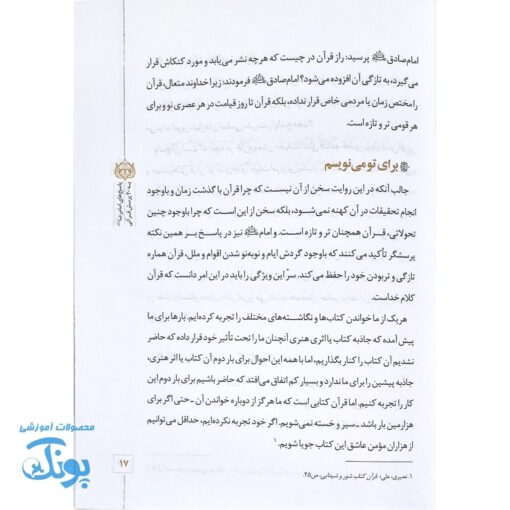 امام‌صادق؏ پرسید: راز قرآن در چیست که هرچه نشر می‌یابد و مورد کنکاش قرار
می‌گیرد، به تازگی آن افزوده می‌شود؟ امام‌صادق؏ فرمودند: زیرا خداوند متعال، قرآن
را مختص زمان یا مردمی خاص قرار نداده، بلکه قرآن تا روز قیامت در هر عصری نو و برای
هر قومی تر و تازه است.
برای تو می‌نویسم
جالب آنکه در این روایت سخن از آن نیست که چرا قرآن با گذشت زمان و باوجود
انجام تحقیقات در آن کهنه نمی‌شود، بلکه سخن از این است که چرا باوجود چنین
تحولاتی، قرآن همچنان تر و تازه است. و امام؏ نیز در پاسخ بر همین نکته
پرسشگر تأکید می‌کنند که باوجود گردش ایام و نوبه‌نو شدن اقوام و ملل، قرآن هماره
تازگی و تربودن خود را حفظ می‌کند. سرّ این ویژگی را باید در این امر دانست که قرآن
کلام خداست.
هریک از ما خواندن کتاب‌ها و نگاشته‌های مختلف را تجربه کرده‌ایم. بارها برای ما
پیش آمده که جاذبه کتاب یا اثری هنری آنچنان ما را تحت تأثیر خود قرار داده که حاضر
نشدیم آن کتاب را کنار بگذاریم، اما با همه این احوال برای بار دوم آن کتاب یا اثر هنری،
جاذبه پیشین را برای ما ندارد و بسیار کم اتفاق می‌افتد که حاضر باشیم برای بار دوم این
کار را تجربه کنیم. اما قرآن کتابی است که ما هرگز از دوباره خواندن آن ـ حتی اگر برای
هزارمین بار باشد ـ سیر و خسته نمی‌شویم. اگر خود تجربه نکرده‌ایم، حداقل می‌توانیم
از هزاران مؤمن عاشق این کتاب جویا شویم.۱
۱. نصیری، علی؛ قرآن کتاب شور و شیدایی، ص۴۵.
پاسخ‌های امام رضا؏
به ۴۰ پرسش قرآنی
۱۷
محصولات آموزشی
پونک